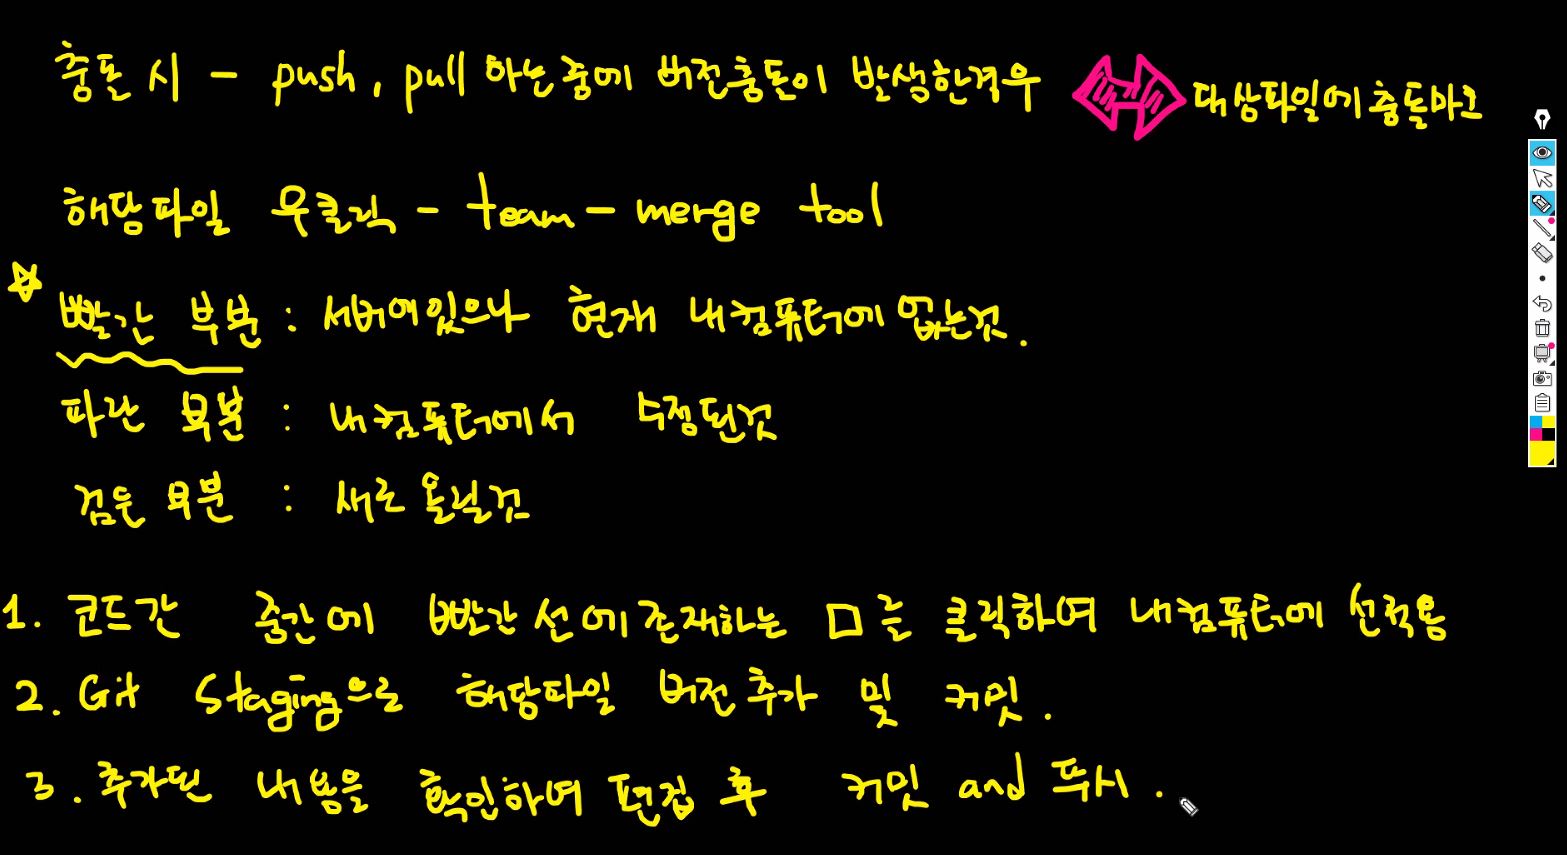 충돌 시 - push, pull 하는중에 버전충돌이 발생한경우 대상파일에충돌마크
해당파일 우클릭 - team - merge tool
빨간 부분 : 서버에있으나 현재 내컴퓨터에 없는것.
파란 부분 : 내컴퓨터에서 수정된것
검은 부분 : 새로 올릴것
1. 코드간 중간에 빨간선에존재하는 ㅁ를 클릭하여 내컴퓨터에 선적용
2. Git Staging으로 해당파일 버전추가 및 커밋.
3. 추가된 내용을 확인하여 편집 후 커밋 and 푸시.